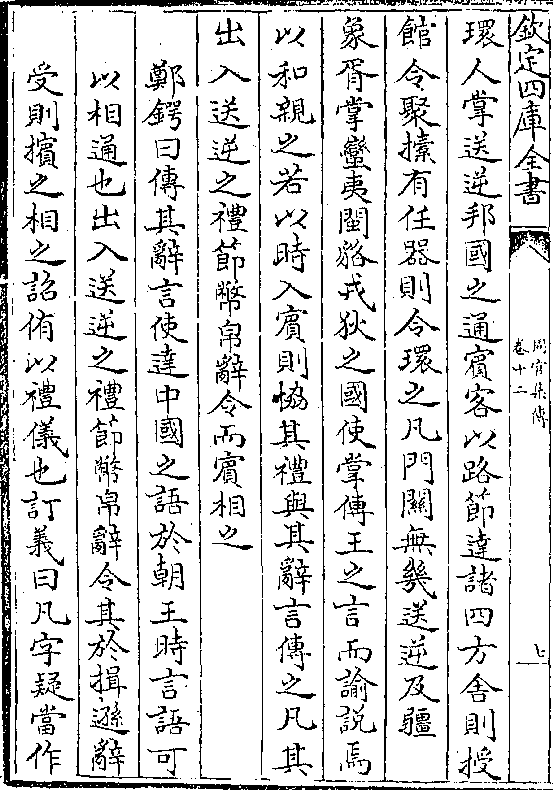 欽定四庫全書
周官集傳
卷十二
七
環人掌送逆邦國之通賓客以路節達諸四方舍則授
館令聚㯓有任器則令環之凡門關無幾送逆及疆
象胥掌蠻夷閩貉戎狄之國使掌傳王之言而諭說焉
以和親之若以時入賓則恊其禮與其辭言傳之凡其
出入送逆之禮節幣帛辭令而賓相之
鄭鍔曰傳其辭言使達中國之語於朝王時言語可
以相通也出入送逆之禮節幣帛辭令其於揖遜辭
受則擯之相之詔侑以禮儀也訂義曰凡字疑當作